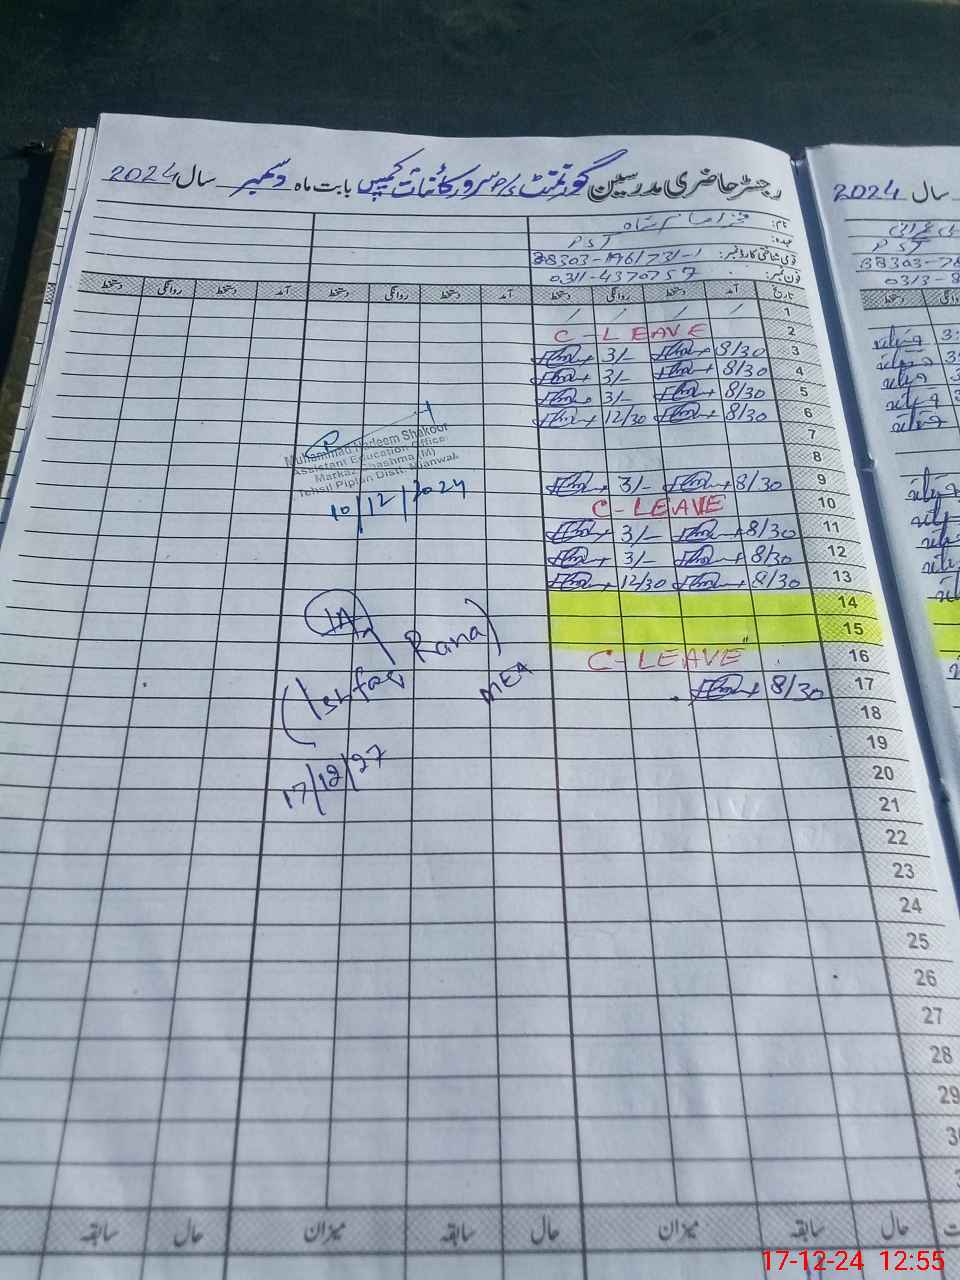 رجسٹر حاضری مدرسین گورنمنٹ P/S سرور کائنات کیمپس بابت ماہ دسمبر سال 2024
سال 2024
نام:
عہدہ: PST
PST
قومی شناختی کارڈ نمبر: 38303-1961731-1
38303-76
فون نمبر: 0311-4370757
0313-8
تاریخ آمد دستخط روانگی دستخط آمد دستخط روانگی دستخط آمد دستخط روانگی دستخط
1
2 C-LEAVE
3 8/30 3/-
4 8/30 3/-
5 8/30 3/-
6 8/30 12/30
7
8
9 8/30 3/-
10 C-LEAVE
11 8/30 3/-
12 8/30 3/-
13 8/30 12/30
14
15
16 C-LEAVE
17 8/30
18
19
20
21
22
23
24
25
26
27
28
29
Muhammad Nadeem Shakour
Assistant Education Office
Markaz Chashma (M)
Tehsil Piplan Distt. Mianwali
10/12/2024
(Ishfaq Rana)
MEA
17/12/27
حال سابقہ میزان حال سابقہ میزان حال سابقہ
17-12-24 12:55